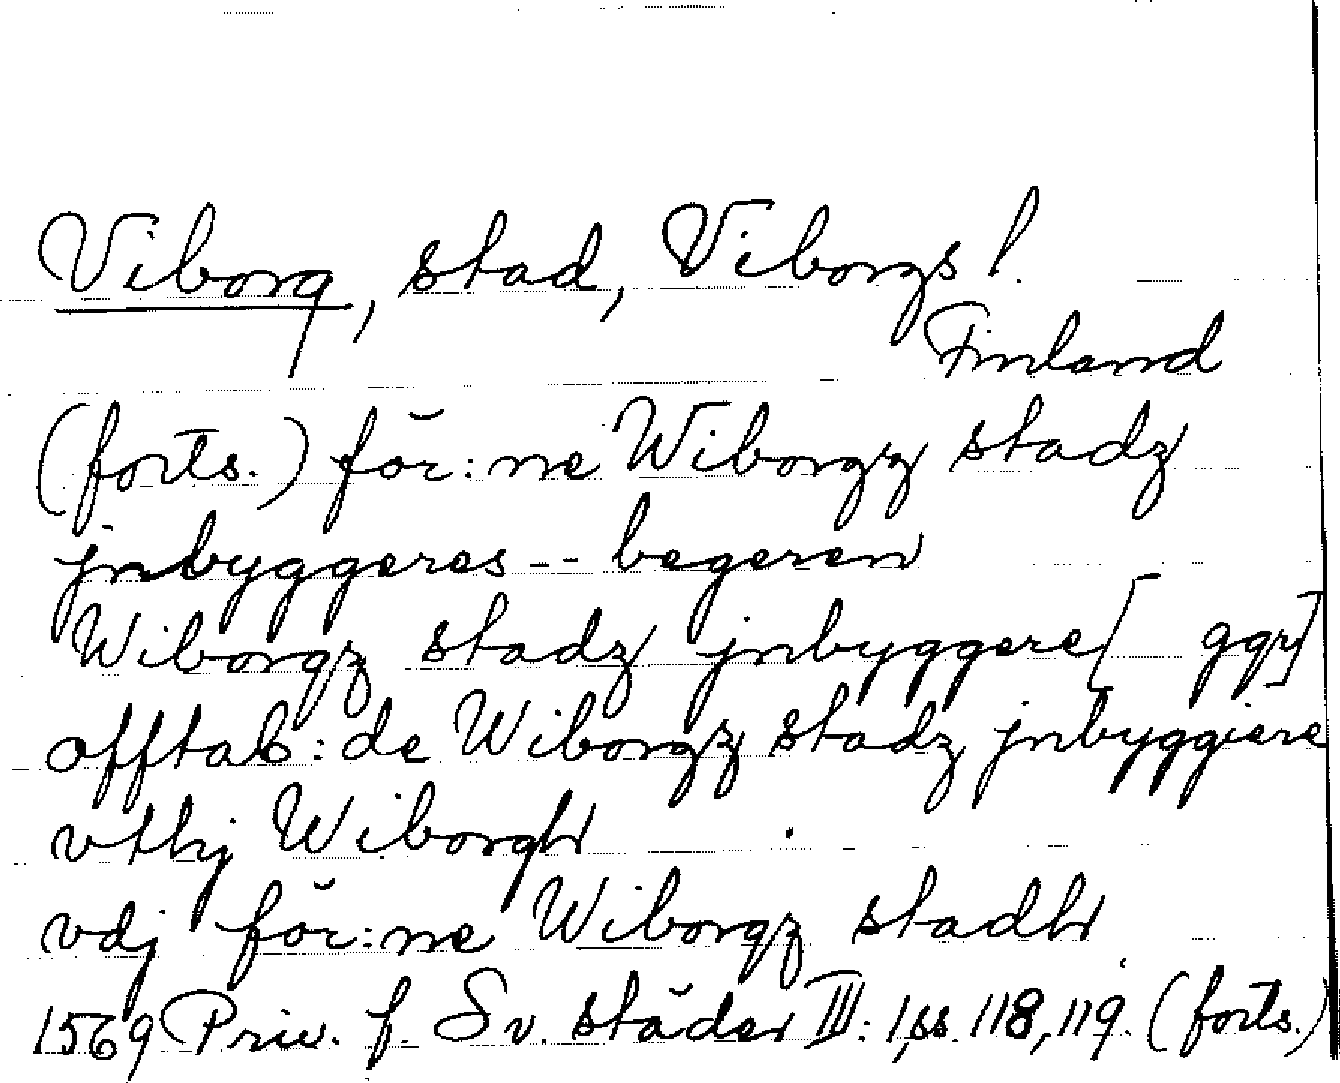 Viborg, stad, Viborgs l.
Finland
(forts.) för:ne Wiborgz stadz
jnbyggeres -- begeren
Wiborgz stadz jnbyggere[ ggr]
offtab: de Wiborgz stadz jnbyggiere
vthj Wiborgh
vdj för:ne Wiborgz stadh
1569 Priv. f. Sv. städer III: 1, ss. 118, 119. (forts.)